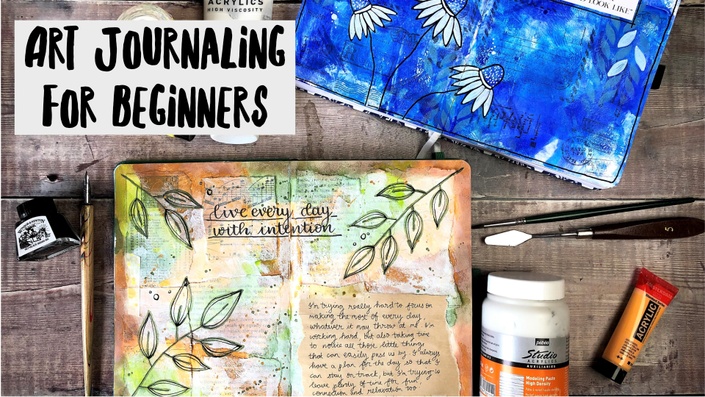 ACRYLICS
HIGH VISCOSITY
LOOK LIKE"
ART JOURNALING
FOR BEGINNERS
live every day
with intention
I'm trying really hard to focus on
making the most of every day
whatever it may throw at me. I'm
working hard, but also taking time
to notice all those little things
that can easily pass us by. I always
have a plan for the day so that I
can stay on track, but I'm trying to
leave plenty of time for fun,
connection and relaxation
5
ACRYLIC
pebeo
Studio
ACRYLICS
AUXILIARIES
Modeling Paste
High Density